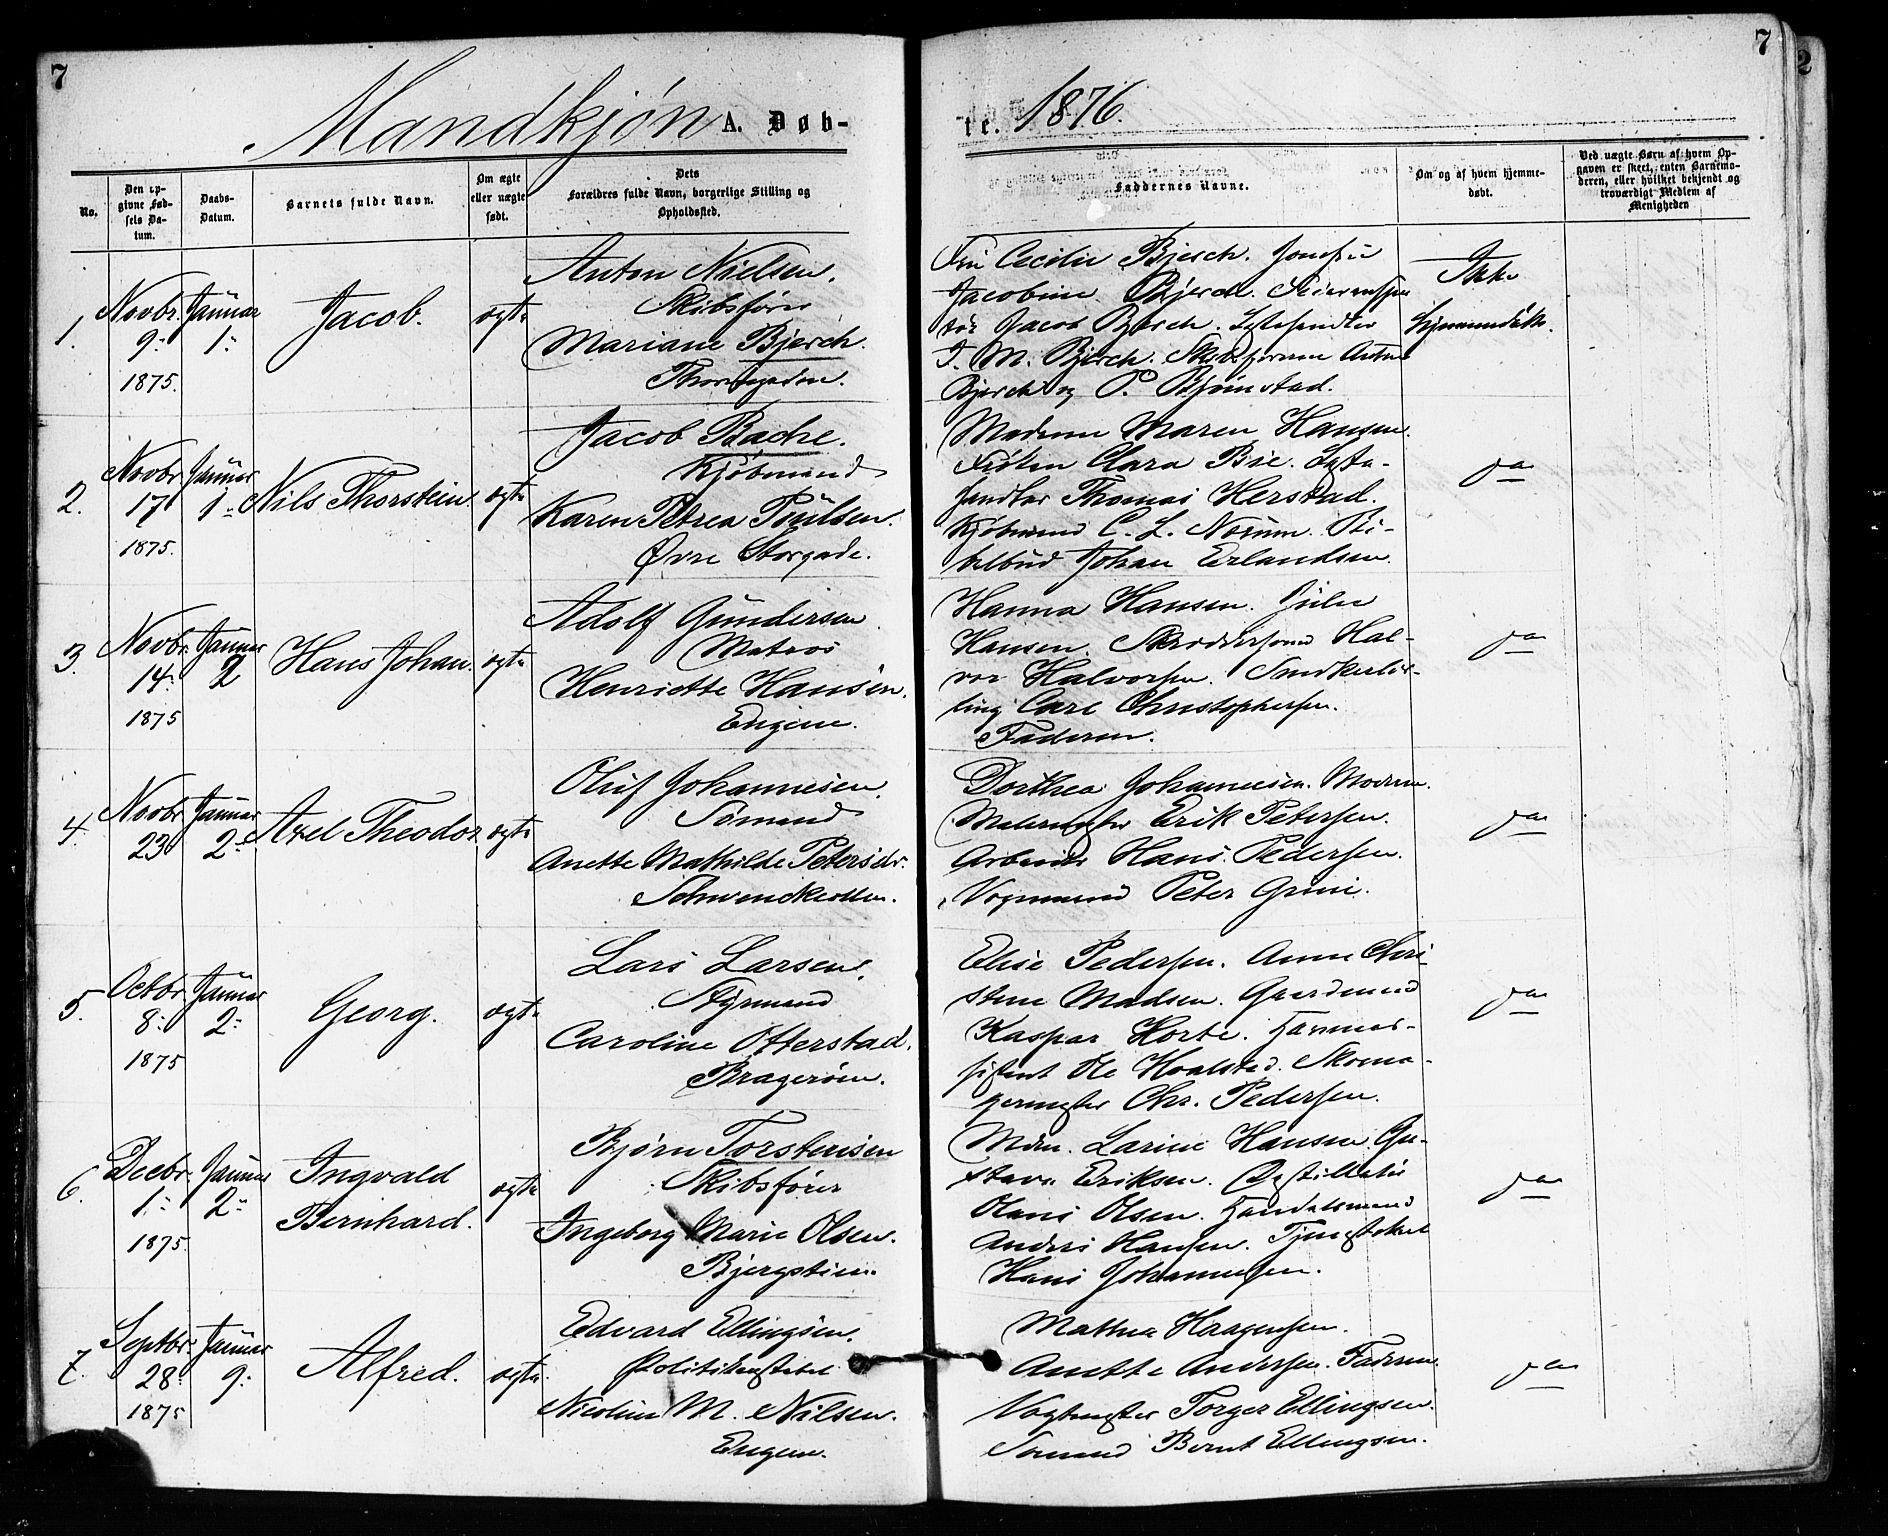 7
Mandkjøn A. Døb-
No.
Den opgivne Fødsels Datum.
Daabs-Datum.
Barnets fulde Navn.
Om ægte eller uægte født.
Dets Forældres fulde Navn, borgerlige Stilling og Opholdssted.
1. Novbr. 9. 1875. Januar 1. Jacob. ægte
Anton Nielsen.
Skibsfører
Mariane Bjerch.
2. Novbr. 17 1875. Januar 1. Nils Thorstein. ægte
Jacob Bache.
Kjøbmand
Karen Petrea Poulsen.
Øvre Storgade.
3. Novbr. 14. 1875 Januar 2 Hans Johan. ægte
Adolf Gundersen.
Matros
Henriette Hansen.
Engene.
4. Novbr. 23 Januar 2. Axel Theodor ægte
Oluf Johannesen.
Sømand
Anette Mathilde Petersdr.
Schwenckeollen.
5. Octbr. 8. 1875 Januar 2. Georg. ægte
Lars Larsen.
Styrmand
Caroline Otterstad.
Bragerøen.
6. Decbr. 1. 1875. Januar 2. Ingvald Bernhard. ægte
Bjørn Torstensen
Skibsfører
Ingeborg Marie Olsen.
Bjergstien.
7. Septbr. 28. 1875 Januar 9. Alfred. ægte
Edvard Ellingsen.
Politikonstabel
Nicoline M. Nilsen.
Engene.
7
2
te. 1876.
Faddernes Navne.
Om og af hvem hjemmedøbt.
Ved uægte Børn af hvem Opgaven er skeet, enten Barnemoderen, eller hvilket bekjendt og troværdigt Medlem af Menigheden
Fru Cecilie Bjerch. Jomfru
Jacobine Bjerch.
Jacob Bjerch.
T. M. Bjerch. Skibsførerne Anton
Bjerch og P. Bjørnstad.
Ikke
hjemmedøbt.
Madam Maren Hansen.
Frøken Clara Bie. Lysta-
Thomas Herstad.
Kjøbmand C. L. Norum. Bi-
belbud Johan Erlandsen.
do
Hanna Hansen. Julie
Hansen. Skræddersvend Hal-
vor Halvorsen. Snedkerlær-
ling Carl Christophersen.
Faderen.
do
Dorthea Johannesen. Moderen.
Malermester Erik Petersen.
Arbeider Hans Pedersen.
Vognmand Peter Grini.
do
Elise Pedersen. Anne Chri-
stine Madsen. Gaardmand
Kaspar Horte.
Ole Hvalstad. Skoma-
germester Chr. Pedersen.
do
Mdm. Larine Hansen. Gu-
stava Eriksen. Destillatør
Hans Olsen. Handelsmand
Anders Hansen.
Hans Johannesen.
do
Mathea Haagensen.
Anette Andersen. Faderen.
Vagtmester Torger Ellingsen.
Sømand Bernt Ellingsen.
do